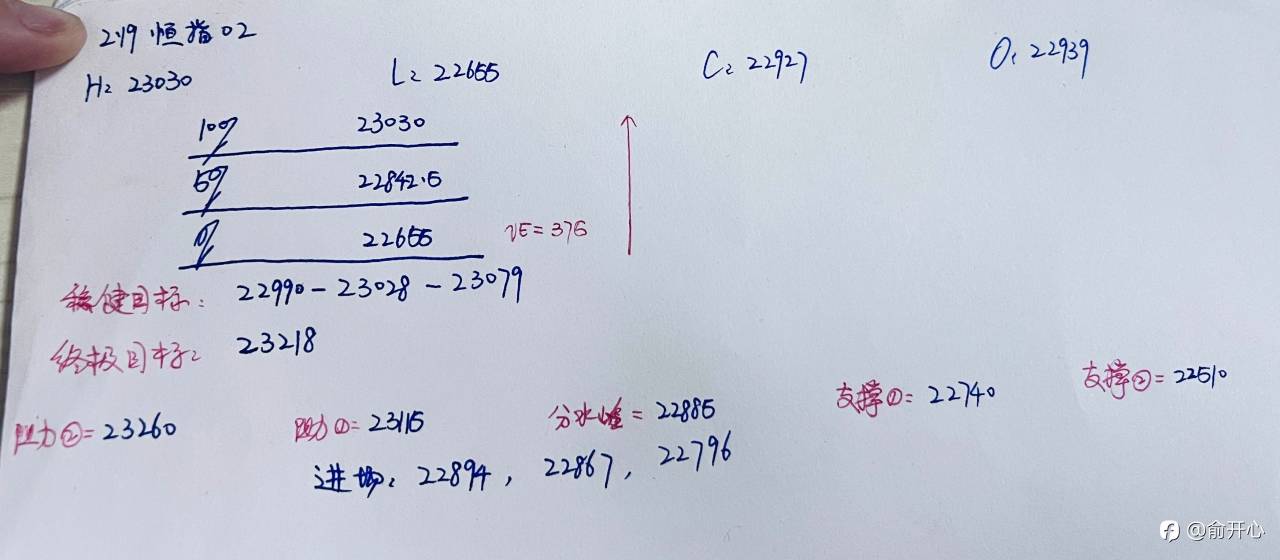 2/19 恒指02
H: 23030 L: 22655 C: 22927 O: 22939
100% 23030
50% 22842.5
0% 22655 VE=375
稳健目标: 22990-23028-23079
终极目标: 23218
阻力②=23260 阻力①=23115 分水岭=22885 支撑①=22740 支撑②=22510
进场: 22894, 22867, 22796
@俞开心